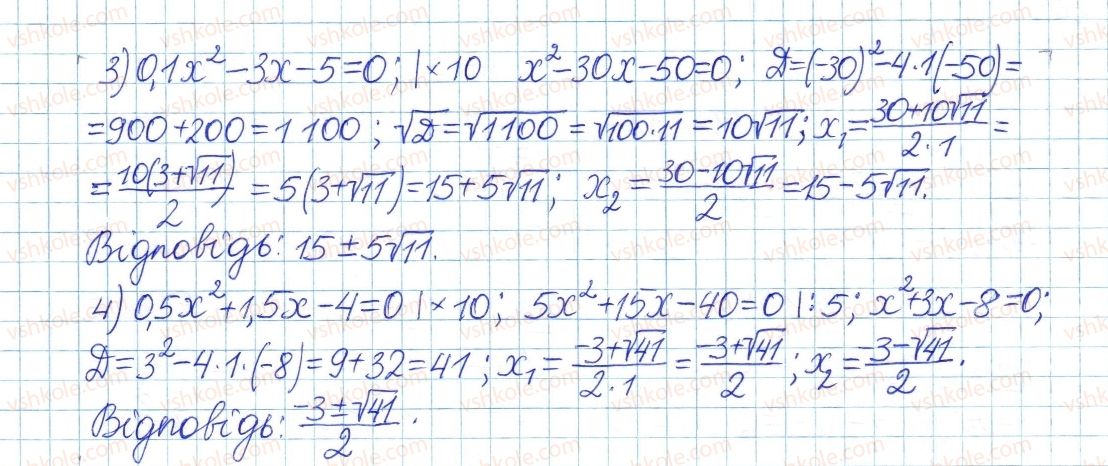 3) 0,1x² - 3x - 5 = 0; | × 10   x² - 30x - 50 = 0; D = (-30)² - 4·1(-50) =
= 900 + 200 = 1 100; √D = √1100 = √100·11 = 10√11; x₁ = (30+10√11)/(2·1) =
= 10(3+√11)/2 = 5(3+√11) = 15 + 5√11; x₂ = (30-10√11)/2 = 15 - 5√11.
Відповідь: 15 ± 5√11.
4) 0,5x² + 1,5x - 4 = 0 | × 10; 5x² + 15x - 40 = 0 | : 5; x² + 3x - 8 = 0;
D = 3² - 4·1·(-8) = 9 + 32 = 41; x₁ = (-3+√41)/(2·1) = (-3+√41)/2; x₂ = (-3-√41)/2.
Відповідь: (-3±√41)/2.
vshkole.com